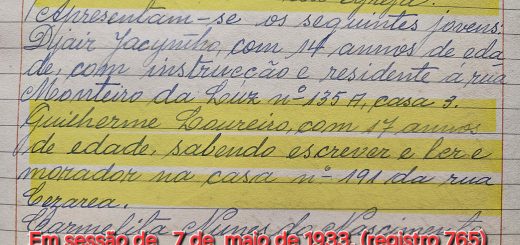 Apresentam-se os seguintes jovens:
Djair Jacyntho, com 14 annos de eda-
de, com instrucção e residente á rua
Monteiro da Luz nº 135 A, casa 3.
Guilherme Loureiro, com 17 annos
de edade, sabendo escrever e ler e
morador na casa nº 191 da rua
Cezarea.
Carmelita Nunes do Nascimento
Em sessão de 7 de maio de 1933 (registro 765)